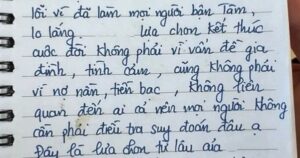 lỗi vì đã làm mọi người bận tâm,
lo lắng lựa chọn kết thúc
cuộc đời không phải vì vấn đề gia
đình, tình cảm, cũng không phải
vì nợ nần, tiền bạc, không liên
quan đến ai cả nên mọi người không
cần phải điều tra suy đoán đâu ạ
Đây là lựa chọn từ lâu của